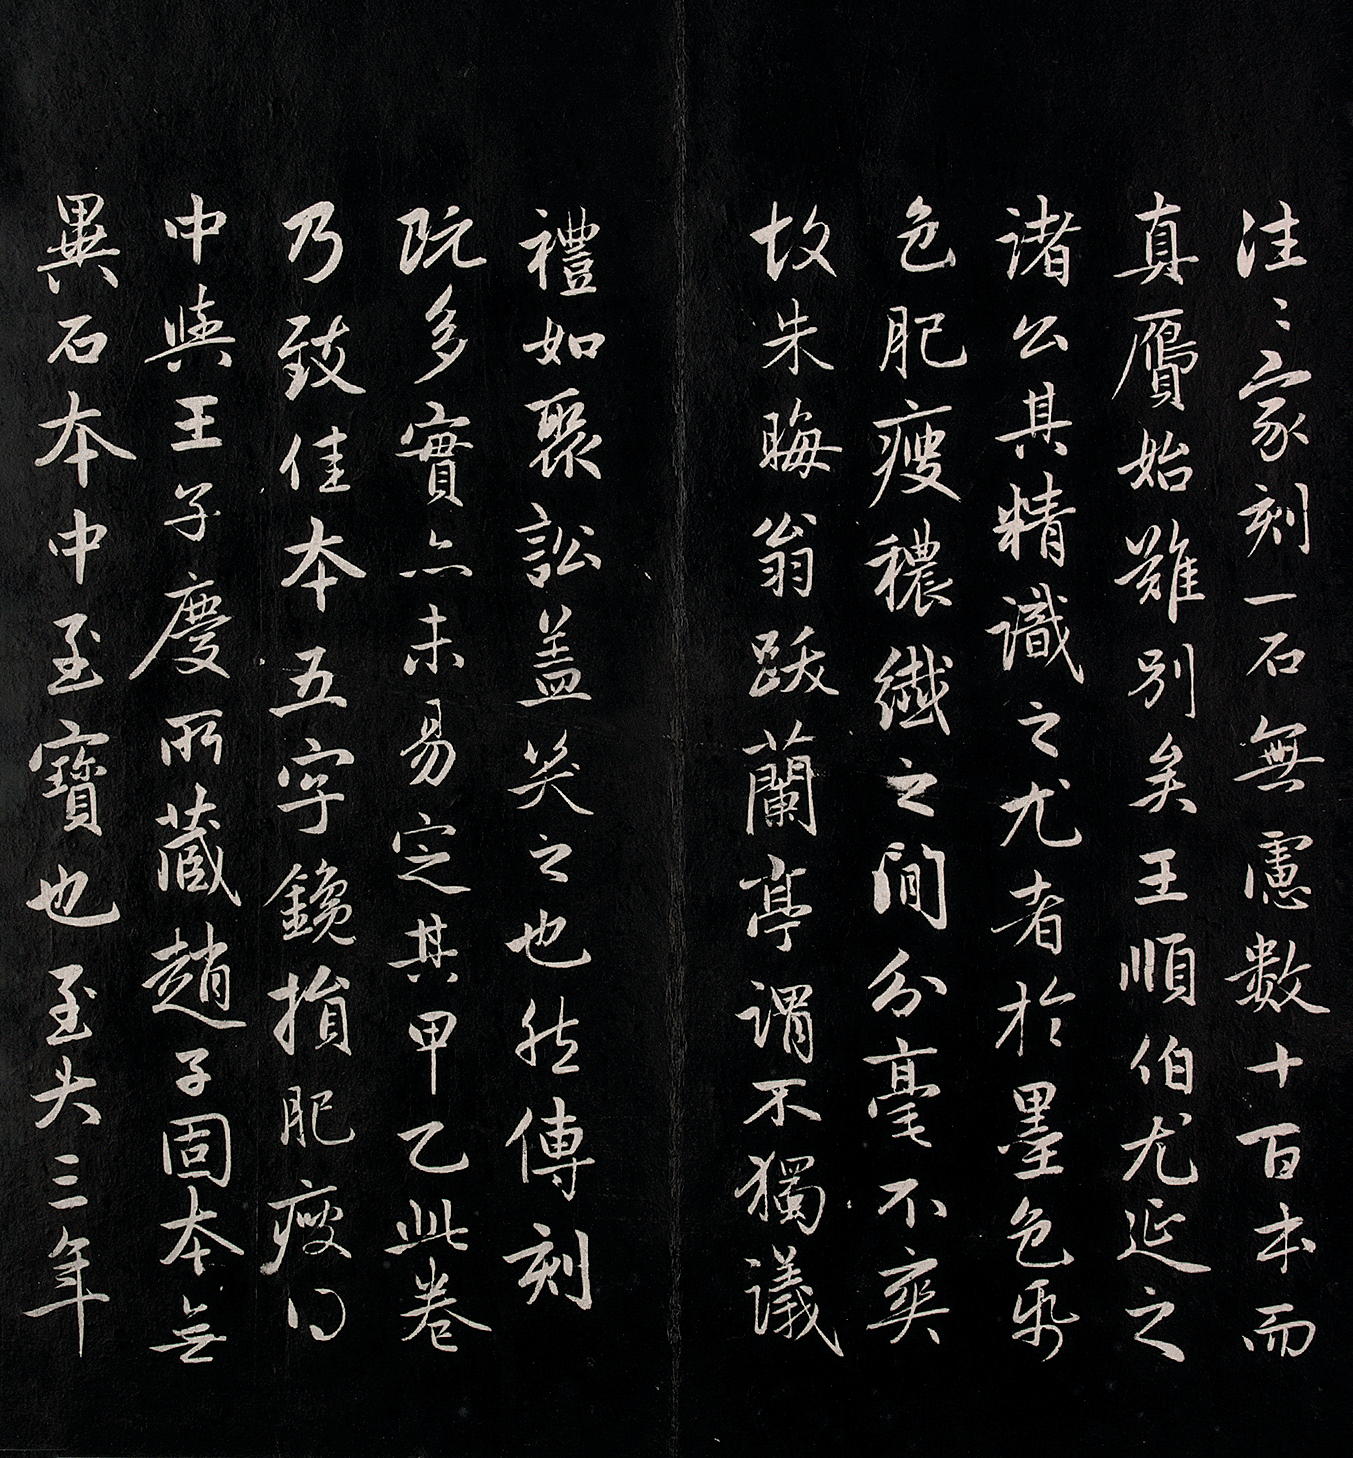 往〻家刻一石無慮數十百本而
真贗始難別矣王順伯尤延之
諸公其精識之尤者於墨色𢃄
色肥瘦穠纖之間分毫不爽
故朱晦翁跋蘭亭謂不獨議
禮如聚訟盖笑之也然傳刻
既多實亦未易定其甲乙此卷
乃致佳本五字鑱損肥瘦得
中與王子慶所藏趙子固本無
異石本中至寶也至大三年